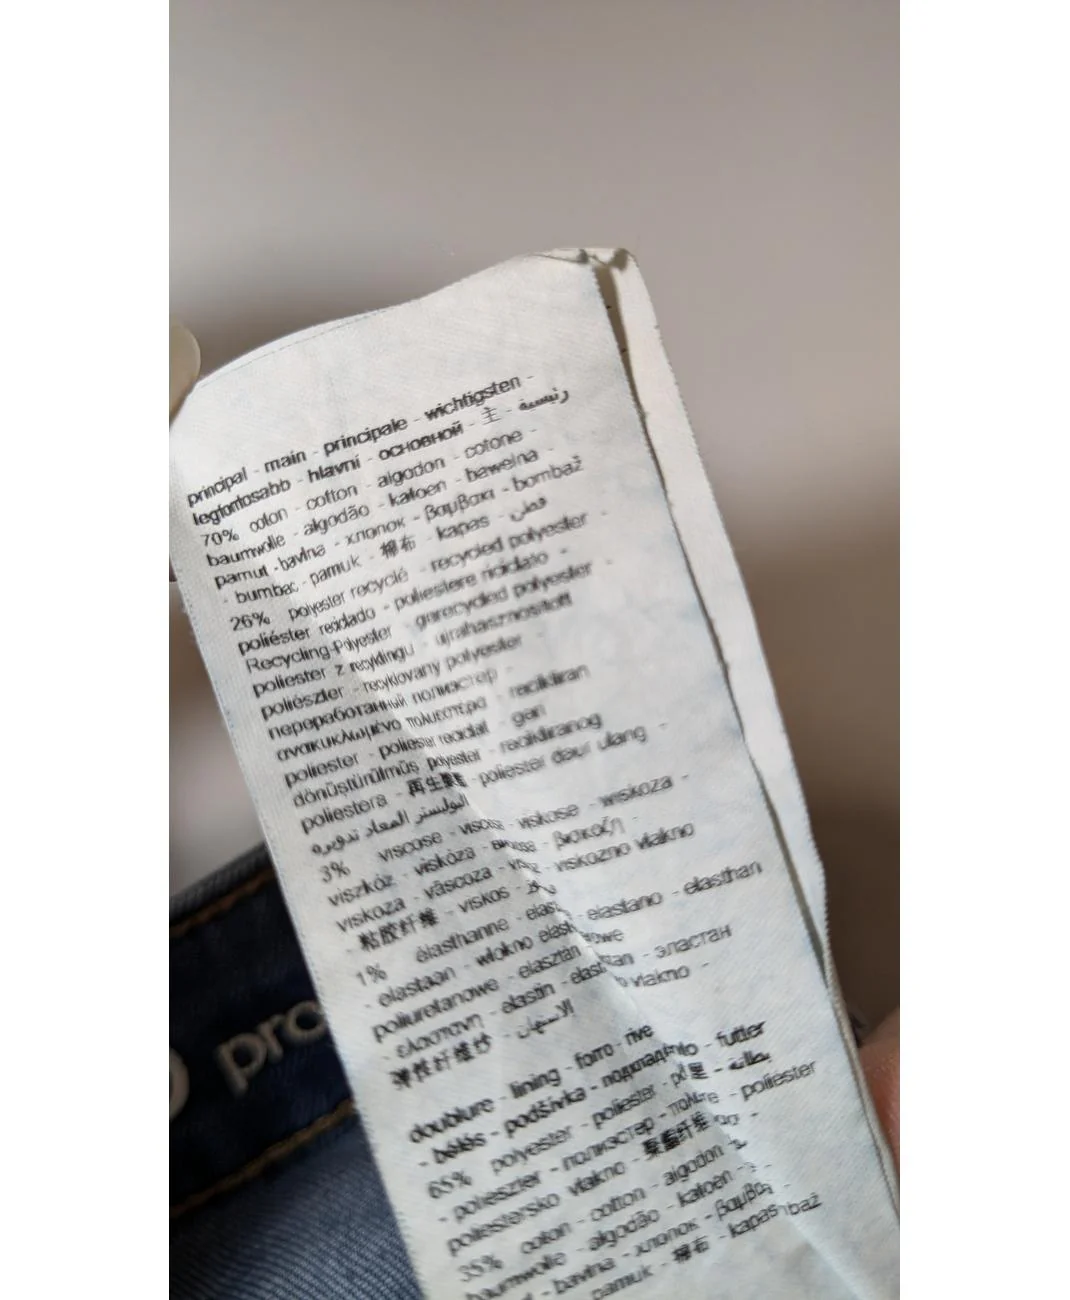 principal - main - principale - wichtigsten -
legfontosabb - hlavní - основной - 主 - رئيسية
70% coton - cotton - algodon - cotone -
baumwolle - algodão - katoen - bawełna -
pamut - bavlna - хлопок - βαμβακι - bombaž
- bumbac - pamuk - 棉布 - kapas - قطن
26% polyester recyclé - recycled polyester -
poliéster reciclado - poliestere riciclato -
Recycling-Polyester - gerecycled polyester -
poliester z recyklingu - újrahasznosított
poliészter - recyklovany polyester -
переработанный полиэстер -
ανακυκλωμένο πολυεστέρα - recikliran
poliester - poliester reciclat - geri
dönüştürülmüş polyester - recikliranog
poliestera - 再生聚酯 - poliester daur ulang -
البوليستر المعاد تدويره
3% viscose - viscosa - viskose - wiskoza -
viszkóz - viskóza - вискоза - βισκοζη -
viskoza - vâscoza - viskozno vlakno
- 粘胶纤维 - viskos -
1% élasthanne - elastano - elasthan
- elastaan - włokno
poliuretanowe - elasztán - эластан
- ελαστανη - elastin - vlakno -
弹性纤维纱 -
doublure - lining - forro - futter
- bélés - podšívka - подкладка - بطانة
65% polyester - poliester - poliéster
- poliészter - полиэстер -
poliestersko vlakno - 聚酯纤维
35% coton - cotton - algodon
baumwolle - algodão - katoen -
- bavlna - хлопок - βαμβα -
pamuk - 棉布 - kapas